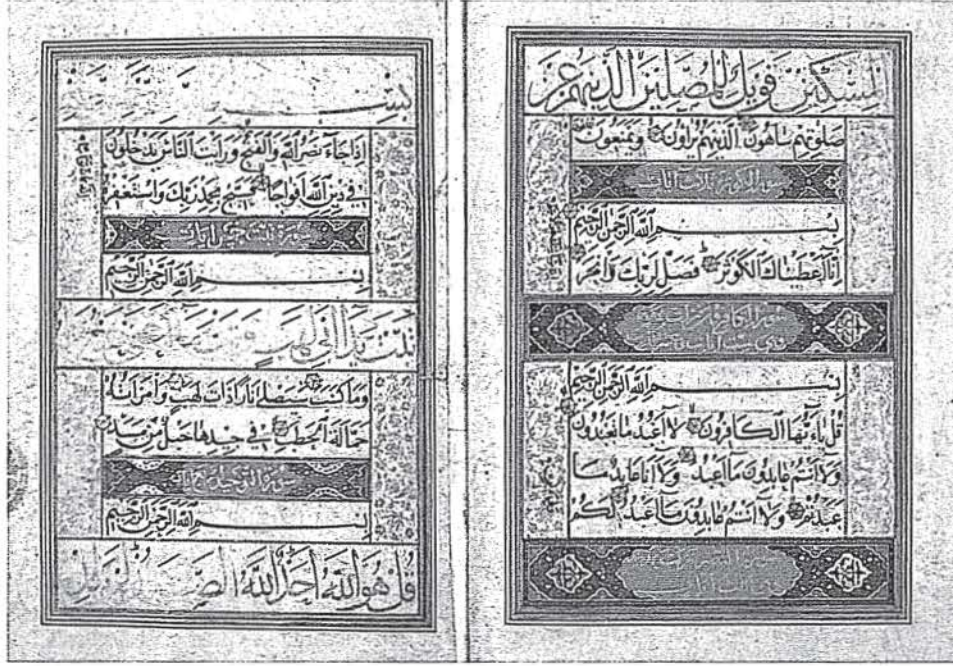 المسكين فويل للمصلين الذين هم عن
صلوتهم ساهون الذين هم يراون ويمنعون
سورة الكوثر ثلاث آيات
بسم الله الرحمن الرحيم
انا اعطيناك الكوثر فصل لربك وانحر
سورة
بسم الله الرحمن الرحيم
قل يا ايها الكافرون لا اعبد ما تعبدون
ولا انتم عابدون ما اعبد ولا انا عابد ما
عبدتم ولا انتم عابدون ما اعبد لكم
بسم
اذا جاء نصر الله والفتح ورايت الناس يدخلون
في دين الله افواجا فسبح بحمد ربك واستغفره
سورة تبت خمس ايات
بسم الله الرحمن الرحيم
تبت يدا ابي لهب
وما كسب سيصلى نارا ذات لهب وامراته
حمالة الحطب في جيدها حبل من مسد
سورة التوحيد
بسم الله الرحمن الرحيم
قل هو الله احد الله الصمد لم يلد